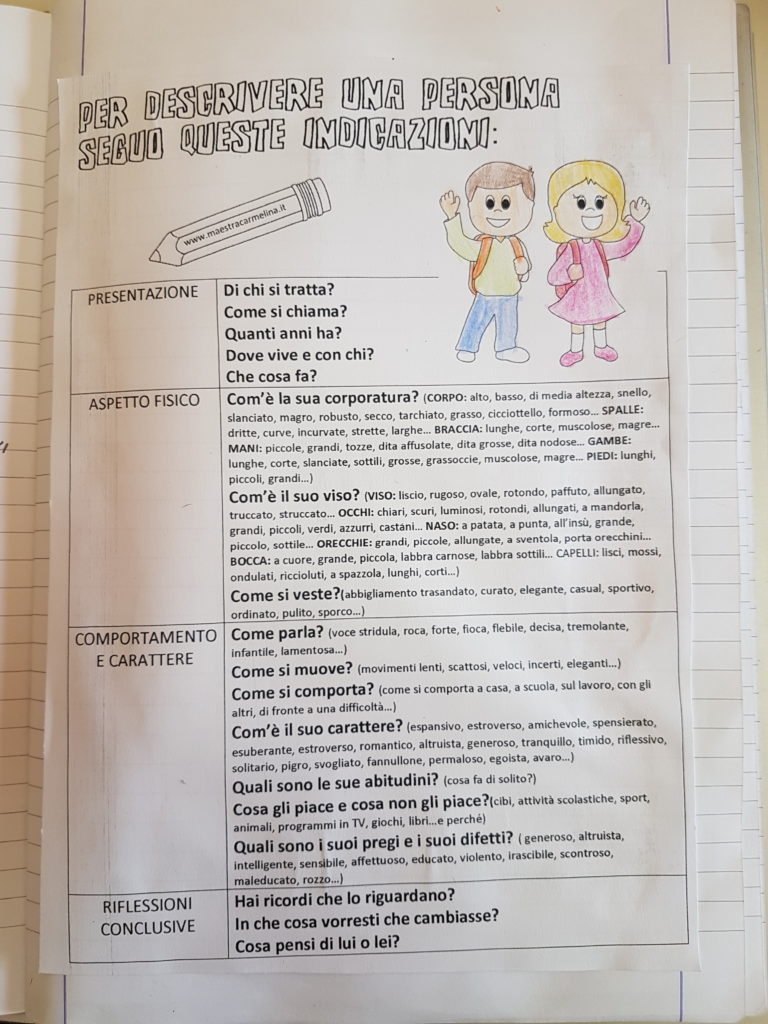 PER DESCRIVERE UNA PERSONA
SEGUO QUESTE INDICAZIONI:
www.maestracarmelina.it
PRESENTAZIONE
Di chi si tratta?
Come si chiama?
Quanti anni ha?
Dove vive e con chi?
Che cosa fa?
ASPETTO FISICO
Com'è la sua corporatura? (CORPO: alto, basso, di media altezza, snello,
slanciato, magro, robusto, secco, tarchiato, grasso, cicciottello, formoso... SPALLE:
dritte, curve, incurvate, strette, larghe... BRACCIA: lunghe, corte, muscolose, magre...
MANI: piccole, grandi, tozze, dita affusolate, dita grosse, dita nodose... GAMBE:
lunghe, corte, slanciate, sottili, grosse, grassoccie, muscolose, magre... PIEDI: lunghi,
piccoli, grandi...)
Com'è il suo viso? (VISO: liscio, rugoso, ovale, rotondo, paffuto, allungato,
truccato, struccato... OCCHI: chiari, scuri, luminosi, rotondi, allungati, a mandorla,
grandi, piccoli, verdi, azzurri, castani... NASO: a patata, a punta, all'insù, grande,
piccolo, sottile... ORECCHIE: grandi, piccole, allungate, a sventola, porta orecchini...
BOCCA: a cuore, grande, piccola, labbra carnose, labbra sottili... CAPELLI: lisci, mossi,
ondulati, riccioluti, a spazzola, lunghi, corti...)
Come si veste?(abbigliamento trasandato, curato, elegante, casual, sportivo,
ordinato, pulito, sporco...)
COMPORTAMENTO
E CARATTERE
Come parla? (voce stridula, roca, forte, fioca, flebile, decisa, tremolante,
infantile, lamentosa...)
Come si muove? (movimenti lenti, scattosi, veloci, incerti, eleganti...)
Come si comporta? (come si comporta a casa, a scuola, sul lavoro, con gli
altri, di fronte a una difficoltà...)
Com'è il suo carattere? (espansivo, estroverso, amichevole, spensierato,
esuberante, estroverso, romantico, altruista, generoso, tranquillo, timido, riflessivo,
solitario, pigro, svogliato, fannullone, permaloso, egoista, avaro...)
Quali sono le sue abitudini? (cosa fa di solito?)
Cosa gli piace e cosa non gli piace?(cibi, attività scolastiche, sport,
animali, programmi in TV, giochi, libri...e perché)
Quali sono i suoi pregi e i suoi difetti? ( generoso, altruista,
intelligente, sensibile, affettuoso, educato, violento, irascibile, scontroso,
maleducato, rozzo...)
RIFLESSIONI
CONCLUSIVE
Hai ricordi che lo riguardano?
In che cosa vorresti che cambiasse?
Cosa pensi di lui o lei?